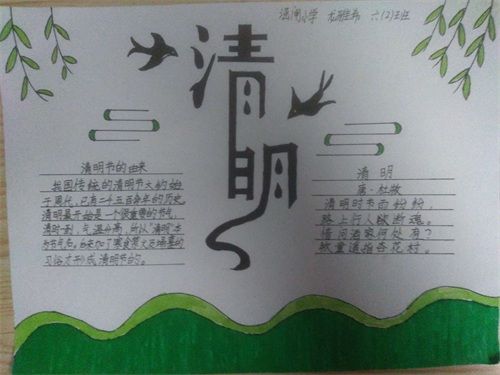 小学 六(2)班
清明
清明节的由来
我国传统的清明节大约始
于周代,已有二千五百余年的历史。
清明最开始是一个很重要的节气,
清明一到,气温升高,所以"清明"
为节气名。后来加了寒食禁火及扫墓的
习俗才形成清明节的。
清 明
唐·杜牧
清明时节雨纷纷,
路上行人欲断魂。
借问酒家何处有?
牧童遥指杏花村。